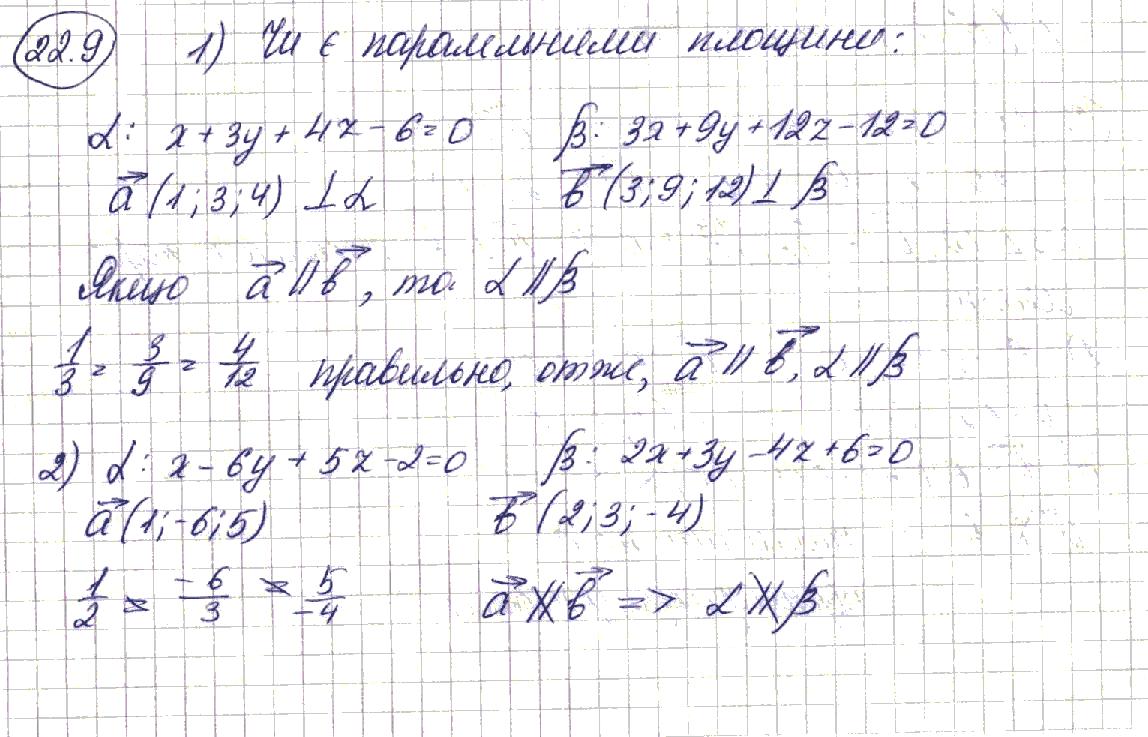 22.9 1) Чи є паралельними площини:
α: x + 3y + 4z - 6 = 0 β: 3x + 9y + 12z - 12 = 0
a⃗ (1; 3; 4) ⊥ α b⃗ (3; 9; 12) ⊥ β
Якщо a⃗ || b⃗, то α || β
1/3 = 3/9 = 4/12 правильно, отже, a⃗ || b⃗, α || β
2) α: x - 6y + 5z - 2 = 0 β: 2x + 3y - 4z + 6 = 0
a⃗ (1; -6; 5) b⃗ (2; 3; -4)
1/2 ≠ -6/3 ≠ 5/-4 a⃗ ∦ b⃗ => α ∦ β